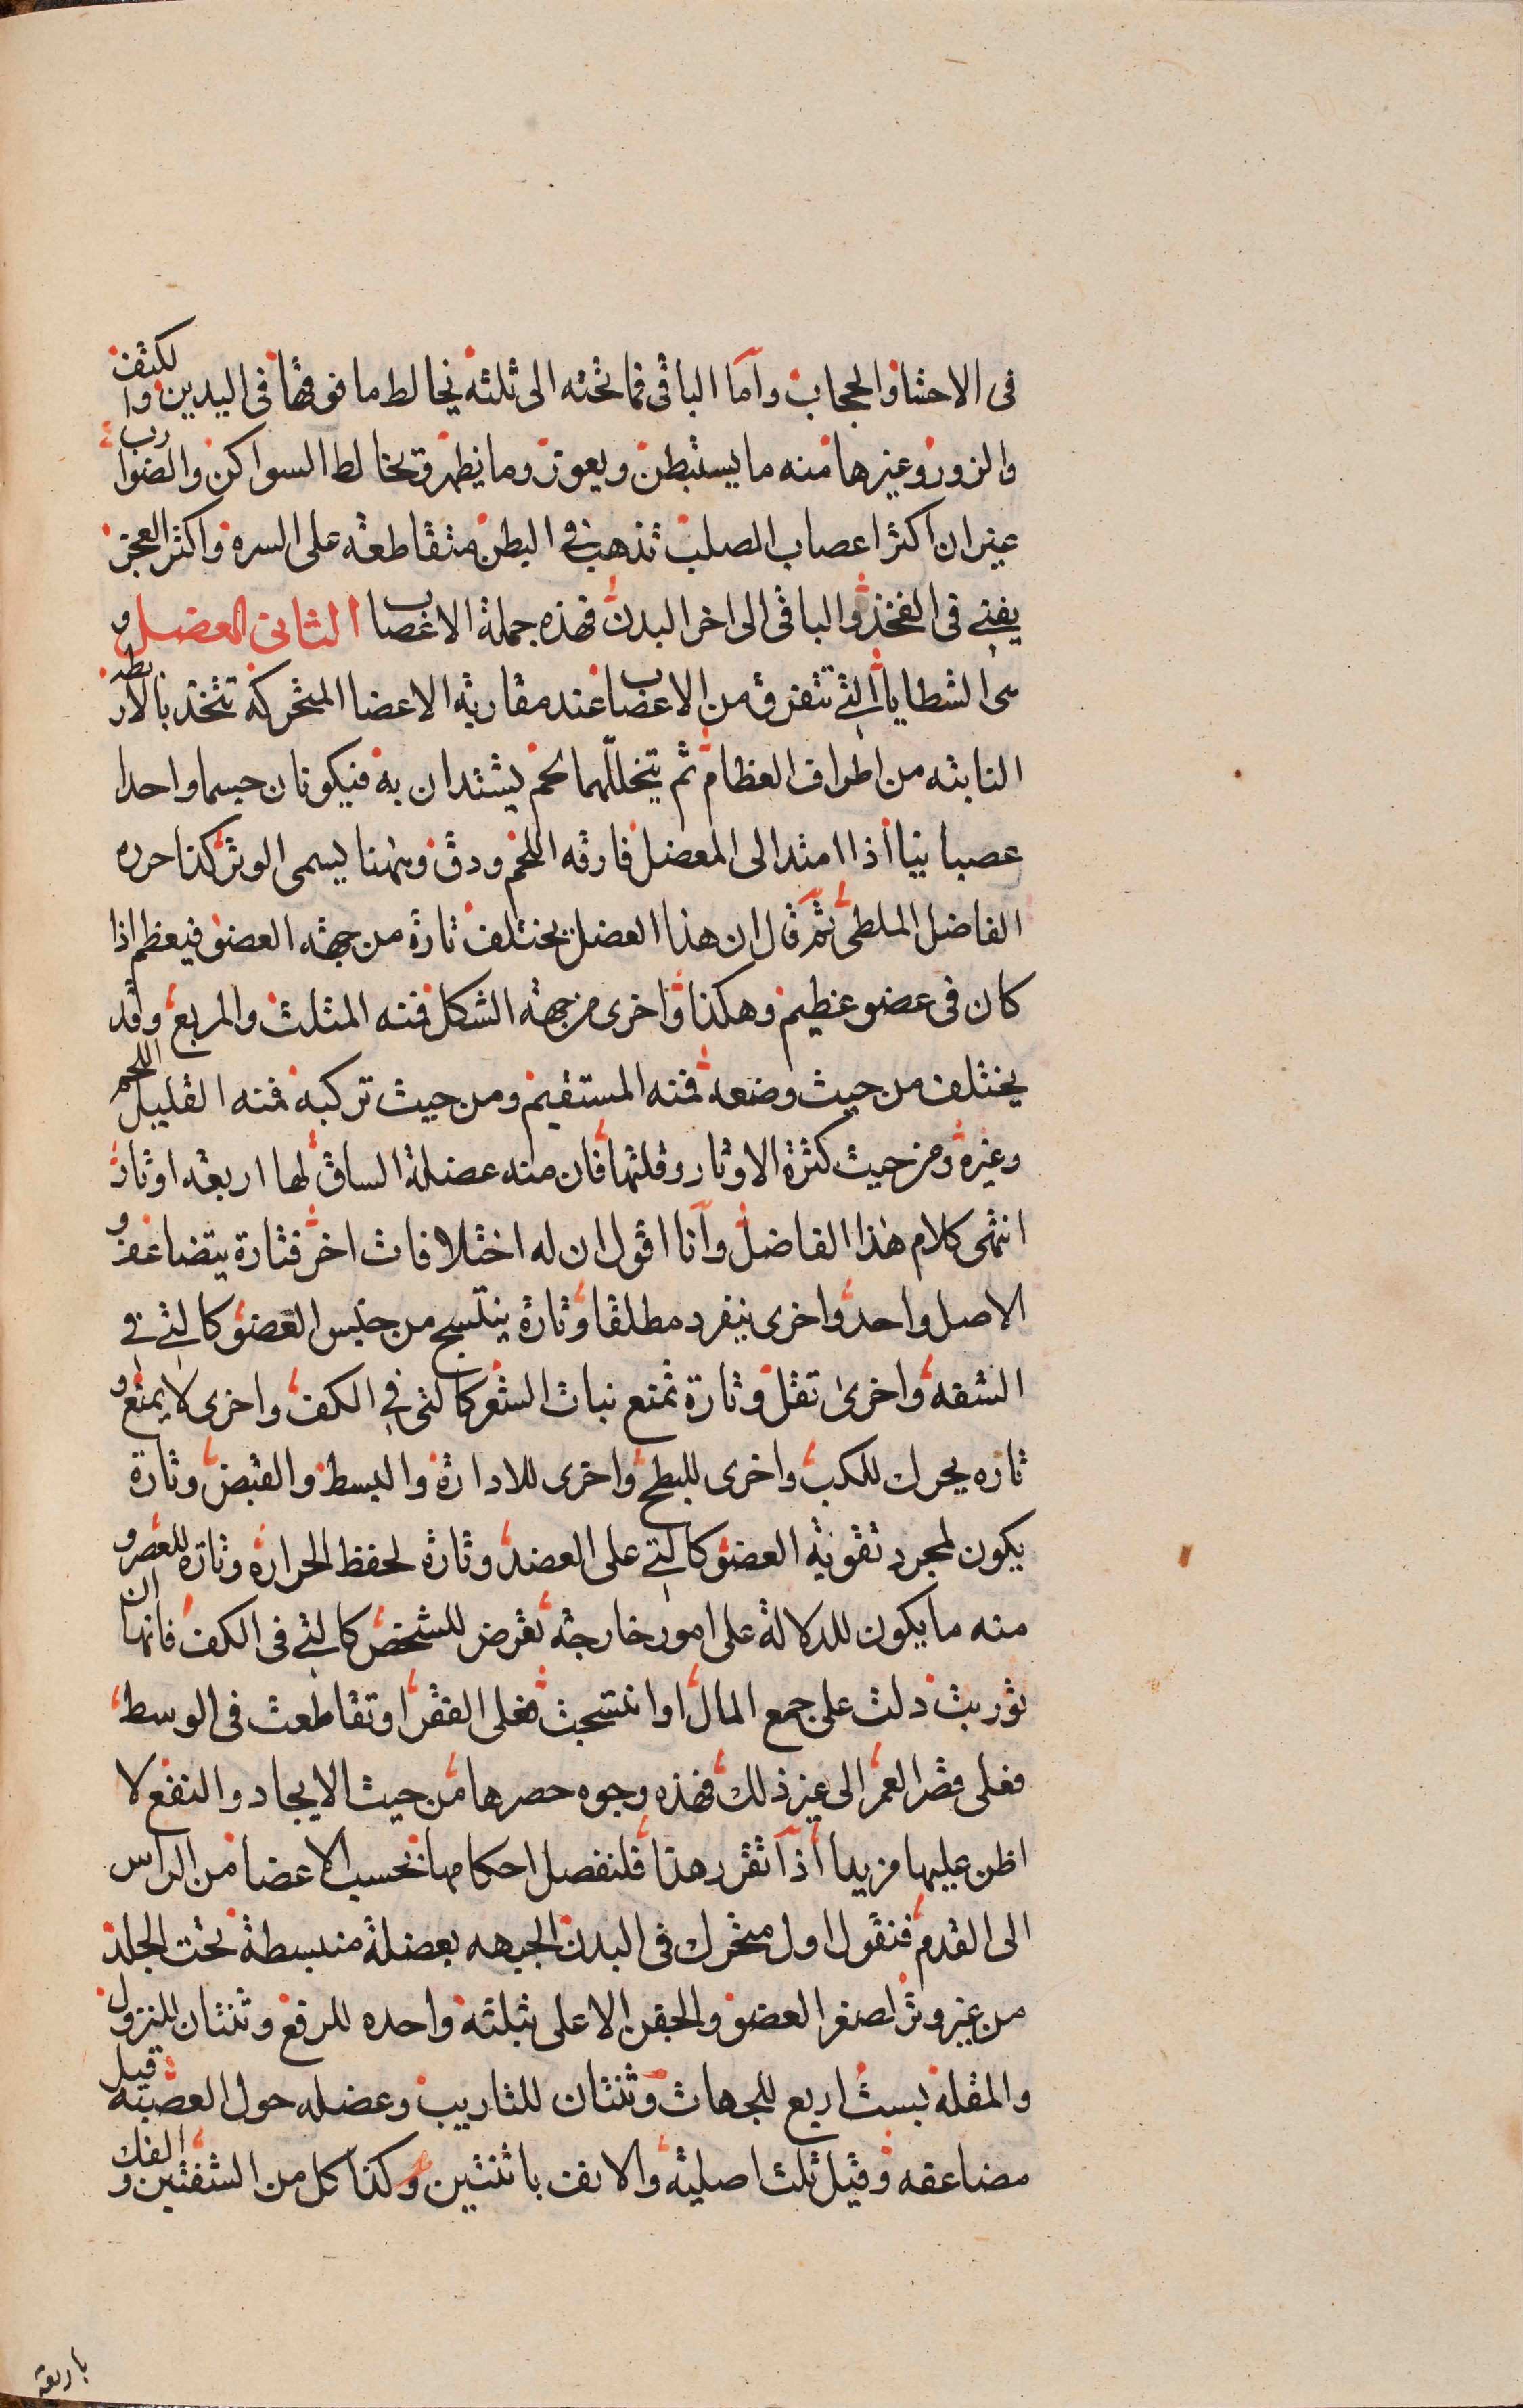 فى الاحشا والحجاب وآما الباقى فما تحته الى ثلثه يخالط ما فوقها فى اليدين والكتف
والزور وغيرها منه ما يستبطن ويغور وما يظهر ويخالط السواكن والضوارب
غير ان اكثر اعصاب الصلب تذهب فى البطن متقاطعه على السره واكثر العجز
يفنى فى الفخذ والباقى الى اخر البدن فهذه جملة الاعصاب الثانى العضل و
هى الشظايا التى تتفرق من الاعصاب عند مقاربة الاعضا المتحركه تتخذ بالاربطه
النابته من اطراف العظام ثم يتخللهما لحم يشتدان به فيكونان جسما واحدا
عصبانيا اذا امتد الى المعضل فارقه اللحم ودق وهنا يسمى الوتر كذا حرره
الفاضل الملطى ثم قال ان هذا العضل يختلف تارة من جهة العضو فيعظم اذا
كان فى عضو عظيم وهكذا واخرى من جهة الشكل فمنه المثلث والمربع وقد
يختلف من حيث وضعه فمنه المستقيم ومن حيث تركبه فمنه القليل اللحم
وغيره ومن حيث كثرة الاوتار وقلتها فان منه عضلة الساق لها اربعه اوتار
انتهى كلام هذا الفاضل وآنا اقول ان له اختلافات اخر فتارة يتضاعف و
الاصل واحد واخرى ينفرد مطلقا وتارة ينتسج من جنس العضو كالتى فى
الشفه واخرى تقل وتارة تمنع نبات الشعر كالتى فى الكف واخرى لا يمنع و
تاره يحرك للكب واخرى للبطح واخرى للادارة والبسط والقبض وتارة
يكون لمجرد تقوية العضو كالتى على العضد وتارة لحفظ الحرارة وتارة للعصر و
منه ما يكون للدلالة على امور خارجة تعرض للشخص كالتى فى الكف فانها ان
توربت دلت على جمع المال او انتسجت فعلى الفقر او تقاطعت فى الوسط
فعلى قصر العمر الى غير ذلك فهذه وجوه حصرها من حيث الايجاد والنفع لا
اظن عليها مزيدا أذآ تقرر هذا فلنفصل احكامها بحسب الاعضا من الراس
الى القدم فنقول اول متحرك فى البدن الجبهه بعضلة منبسطة تحت الجلد
من غير وتر لصغر العضو والجفن الاعلى بثلثه واحده للرفع وثنتان للنزول
والمقلة بست اربع للجهات وثنتان للتاريب وعضله حول العصبة قيل
مضاعفه وقيل ثلث اصلية والانف باثنتين وكذا كل من الشفتين والفك
باربعة